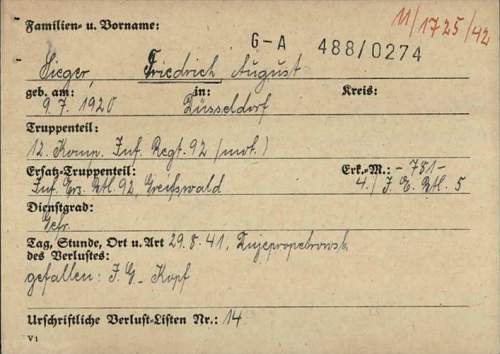 Familien- u. Vorname:
11/1725/42
G-A 488/0274
Sieger, Friedrich August
geb. am: in: Kreis:
9.7.1920 Düsseldorf
Truppenteil:
12. Komp. Inf. Regt. 92 (mot.)
Ersatz-Truppenteil: Erk.-M.: -781-
Inf. Ers. Btl. 92, Greifswald 4./ J. E. Btl. 5
Dienstgrad:
Gefr.
Tag, Stunde, Ort u. Art 29.8.41, Dnjepropetrowsk
des Verlustes:
gefallen: J.G.-Kopf
Urschriftliche Verlust-Listen Nr.: 14
V 1